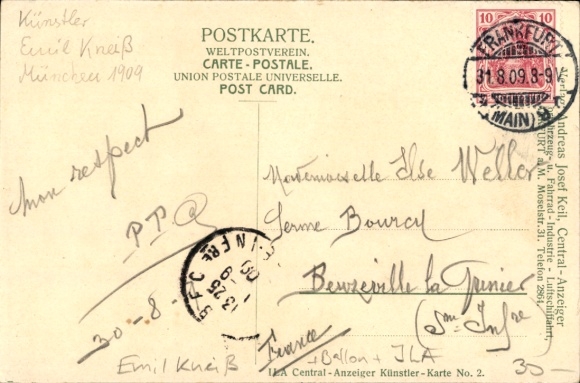 Künstler
Emil Kneiß
München 1909
POSTKARTE.
WELTPOSTVEREIN.
CARTE-POSTALE.
UNION POSTALE UNIVERSELLE.
POST CARD.
10 10
FRANKFURT
31.8.09.8-9V
(MAIN) 9
mon respect
30-8-
Mademoiselle Ilse Weller
Ferme Bourcy
Beuzeville la Grenier
(Sme Infre)
France
INFRE
13 25
1 -9
09
Andreas Josef Keil, Central-Anzeiger
Fahrzeug- u. Fahrrad-Industrie - Luftschiffahrt,
FURT a. M. Moselstr. 31. Telefon 2864.
Emil Kneiß
+ Ballon + ILA
30-
ILA Central-Anzeiger Künstler-Karte No. 2.